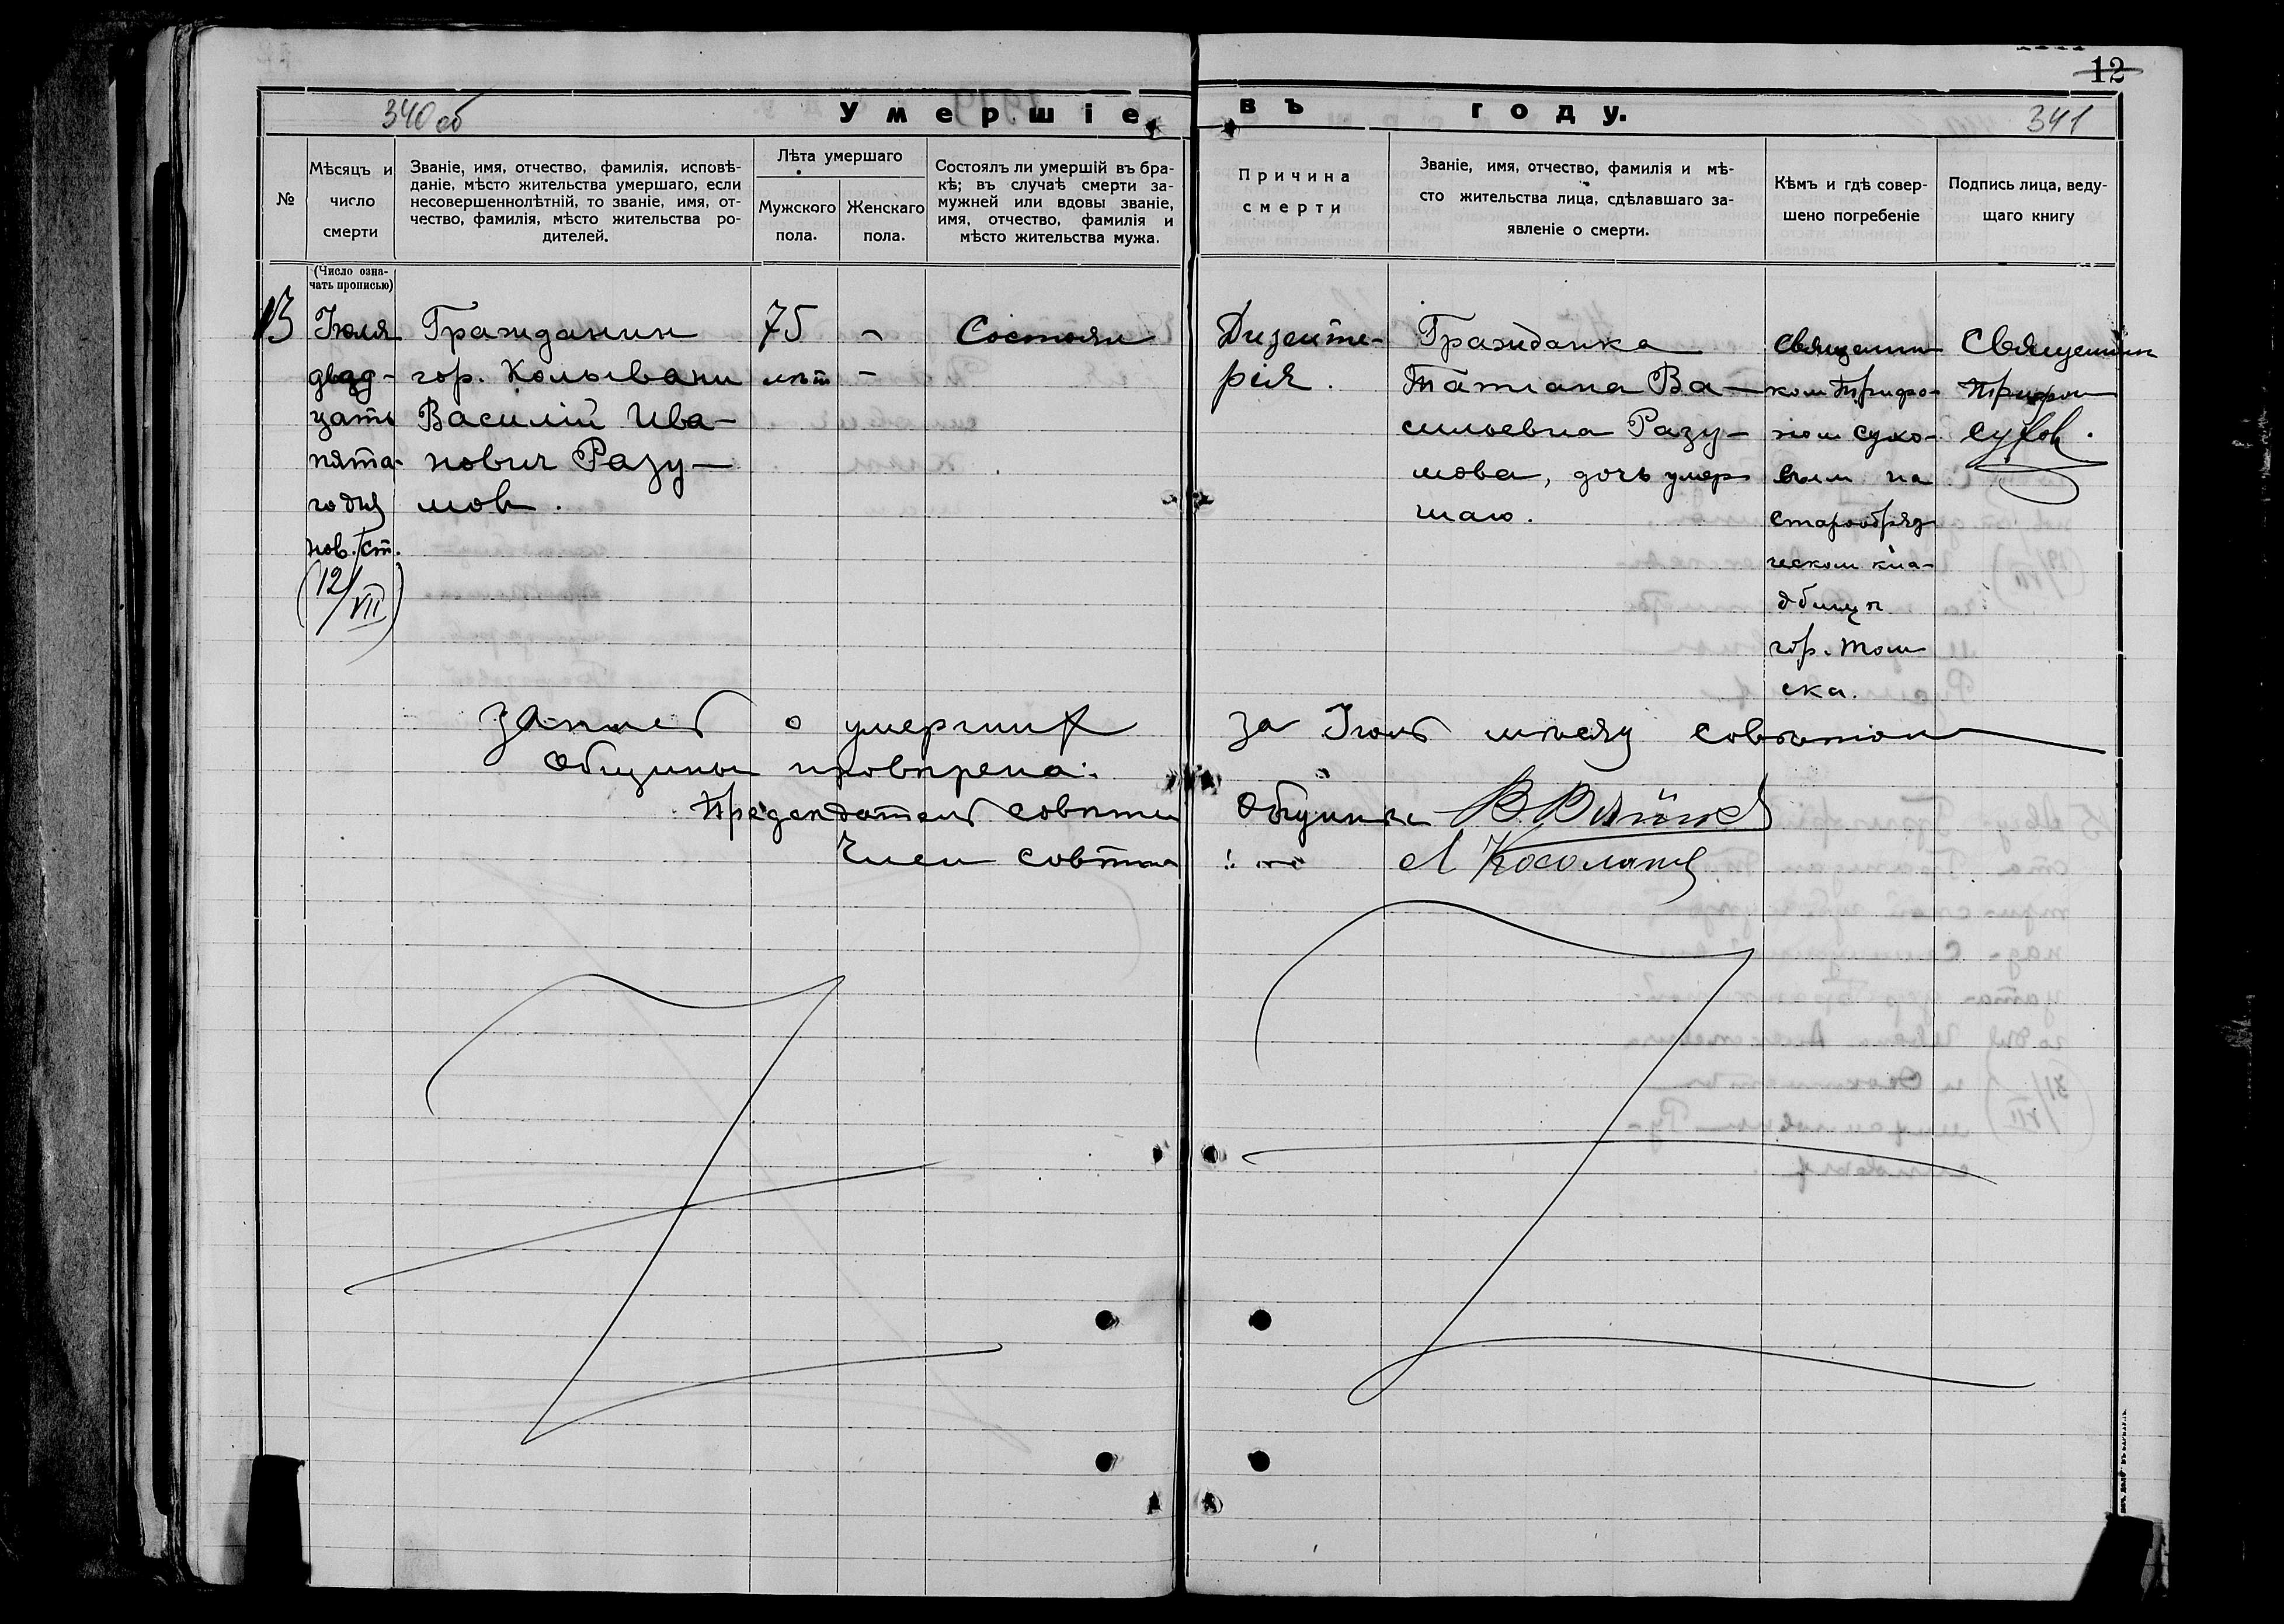 12
340 об
Умершіе
въ году.
341
№
Мѣсяцъ и
число
смерти
Званіе, имя, отчество, фамилія, исповѣ-
даніе, мѣсто жительства умершаго, если
несовершеннолѣтній, то званіе, имя, от-
чество, фамилія, мѣсто жительства ро-
дителей.
Лѣта умершаго
Мужского
пола.
Женскаго
пола.
Состоялъ ли умершій въ бра-
кѣ; въ случаѣ смерти за-
мужней или вдовы званіе,
имя, отчество, фамилія и
мѣсто жительства мужа.
Причина
смерти
Званіе, имя, отчество, фамилія и мѣ-
сто жительства лица, сдѣлавшаго за-
явленіе о смерти.
Кѣмъ и гдѣ совер-
шено погребеніе
Подпись лица, веду-
щаго книгу
(Число озна-
чать прописью)
13
Іюля
двад-
цать
пята-
го дня
нов. ст.
(12/VII)
Гражданин
гор. Колывани
Василій Ива-
нович Разу-
мов.
75
лѣт
-
-
Состоял
Дизенте-
рія.
Гражданка
Татіана Ва-
сильевна Разу-
мова, дочь умер
шаго.
Священни
ком Трифо-
ном Сухо-
вым на
старообряд
ческом кла-
дбищѣ
гор. Том
ска.
Священник
Трифон
Сухов.
Запись о умерших за Іюль мѣсяц совѣтом
Общины провѣрена:
Предсѣдатель Совѣта Общины
Член Совѣта
А Косолапов